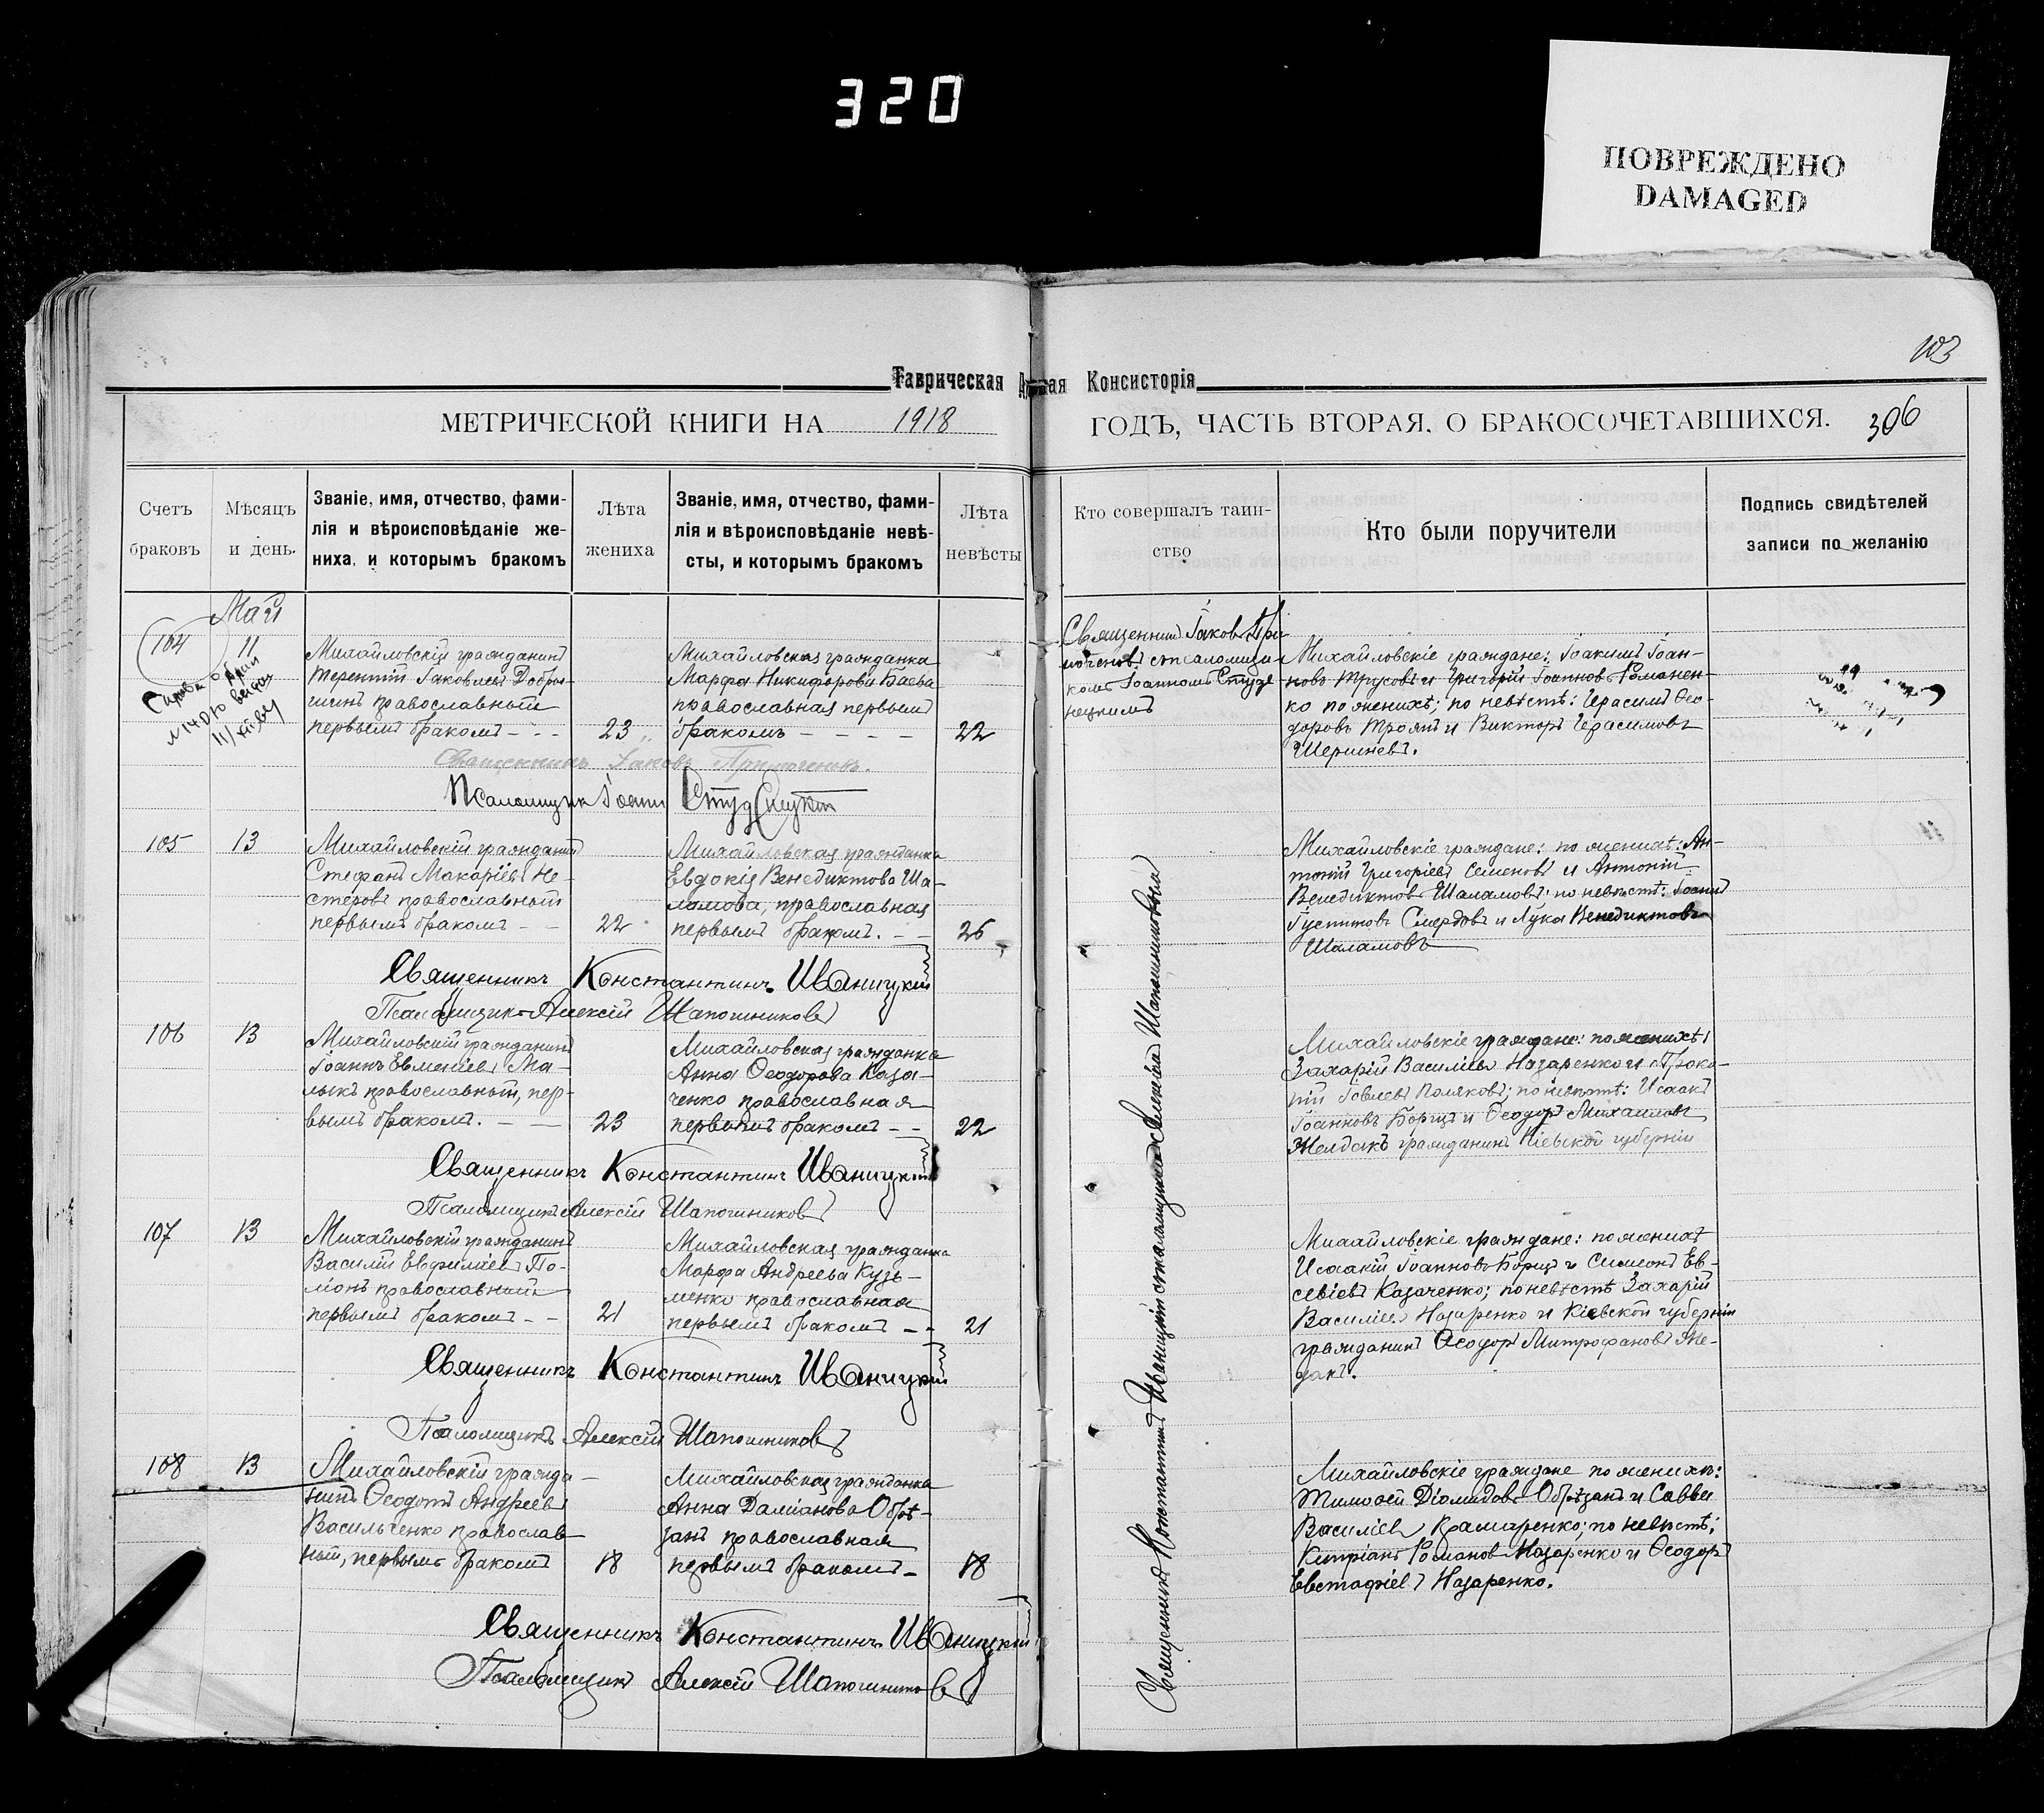 320
ПОВРЕЖДЕНО
DAMAGED
103
Таврическая
Консисторія
МЕТРИЧЕСКОЙ КНИГИ НА 1918
ГОДЪ, ЧАСТЬ ВТОРАЯ, О БРАКОСОЧЕТАВШИХСЯ.
306
Счетъ
браковъ
Мѣсяцъ
и день.
Званіе, имя, отчество, фами-
лія и вѣроисповѣданіе же-
ниха, и которымъ бракомъ
Лѣта
жениха
Званіе, имя, отчество, фами-
лія и вѣроисповѣданіе невѣ-
сты, и которымъ бракомъ
Лѣта
невѣсты
Кто совершалъ таин-
ство
Кто были поручители
Подпись свидѣтелей
записи по желанію
Май
104
11
Михайловскій гражданинъ
Терентій Іаковлевъ
православный
первымъ бракомъ - - -
23
Михайловская гражданка
Марфа Никифорова Баева
православная первымъ
бракомъ - - - -
22
Священникъ Іаковъ При-
моченовъ съ псаломщи-
комъ Іоанномъ Студе-
нецкимъ
Михайловскіе граждане: Іоакимъ Іоан-
новъ Трусовъ и Григорій Іоанновъ Романен-
ко по женихѣ; по невѣстѣ: Герасимъ Ѳео-
доровъ Троянъ и Викторъ Герасимовъ
Шершневъ.
Священникъ Іаковъ Примоченовъ.
Псаломщикъ Іоаннъ Студенецкій
105
13
Михайловскій гражданинъ
Стефанъ Макаріевъ Не-
стеровъ православный
первымъ бракомъ - -
22
Михайловская гражданка
Евдокія Венедиктова Ша-
ламова, православная
первымъ бракомъ. - -
26
Михайловскіе граждане: по женихѣ: Ан-
тоній Григоріевъ Семеновъ и Антоній
Венедиктовъ Шаламовъ; по невѣстѣ: Іоаннъ
Іустиновъ Смердовъ и Лука Венедиктовъ
Шаламовъ
Священникъ Константинъ Иваницкій
Псаломщикъ Алексій Шапошниковъ
106
13
Михайловскій гражданинъ
Іоаннъ Евменіевъ Ма-
лыкъ православный, пер-
вымъ бракомъ. - -
23
Михайловская гражданка
Анна Ѳеодорова Каза-
ченко православная
первымъ бракомъ - -
22
Михайловскіе граждане: по женихѣ:
Захарій Василіевъ Назаренко и Проко-
пій Іовлевъ Поляковъ; по невѣстѣ: Исаакъ
Іоанновъ Борщъ и Ѳеодоръ Михаиловъ
Желдакъ гражданинъ Кіевской губерніи
Священникъ Константинъ Иваницкій
Псаломщикъ Алексій Шапошниковъ
107
13
Михайловскій гражданинъ
Василій Евфиміевъ То-
монъ православный
первымъ бракомъ - -
21
Михайловская гражданка
Марфа Андреева Кузь-
менко православная
первымъ бракомъ - -
21
Михайловскіе граждане: по женихѣ
Исаакій Іоанновъ Борщъ и Симеонъ Ев-
севіевъ Казаченко; по невѣстѣ Захарій
Василіевъ Назаренко и Кіевской губерніи
гражданинъ Ѳеодоръ Митрофановъ
Священникъ Константинъ Иваницкій
Псаломщикъ Алексій Шапошниковъ
108
13
Михайловскій гражда-
нинъ Ѳеодотъ Андреевъ
Васильченко православ-
ный, первымъ бракомъ
18
Михайловская гражданка
Анна Даміанова Обрѣ-
занъ православная
первымъ бракомъ -
18
Михайловскіе граждане по женихѣ:
Тимоѳей Діомидовъ Обрѣзанъ и Савва
Василіевъ Крамаренко; по невѣстѣ:
Кипріанъ Романовъ Назаренко и Ѳеодоръ
Евстафіевъ Назаренко.
Священникъ Константинъ Иваницкій
Псаломщикъ Алексій Шапошниковъ
Священникъ Константинъ Иваницкій съ псаломщикомъ Алексіемъ Шапошниковымъ